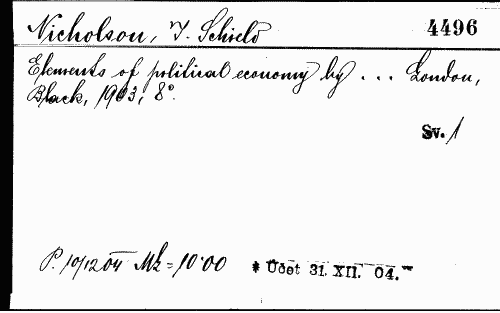 Nicholson, J. Schield
4496
Elements of political economy by ... London,
Black, 1903, 8°.
Sv. 1
P. 10/12 04 Mk = 10·00
* Účet 31. XII. 04. *